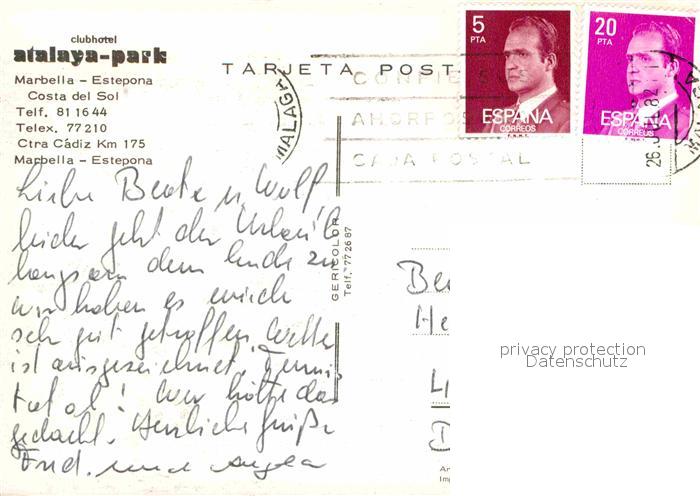 clubhotel
atalaya-park
Marbella – Estepona
Costa del Sol
Telf. 81 16 44
Telex. 77 210
Ctra Cádiz Km 175
Marbella – Estepona
TARJETA POST
5
PTA
ESPAÑA
CORREOS
F.N.M.T.
20
PTA
ESPAÑA
CORREOS
F.N.M.T.
MALAGA
CONFIE SUS
AHORROS
CAJA POSTAL
26
82
MALAGA
Liebe Beate u. Wolf
leider geht der Urlaub
langsam dem Ende zu
wir haben es wirklich
sehr gut getroffen, Wetter
ist ausgezeichnet, Tennis
total! Wer hätte das
gedacht. Herzliche Grüße
Angela
GERICOLOR
Telf. 77 26 87
Be
He
L
D
privacy protection
Datenschutz